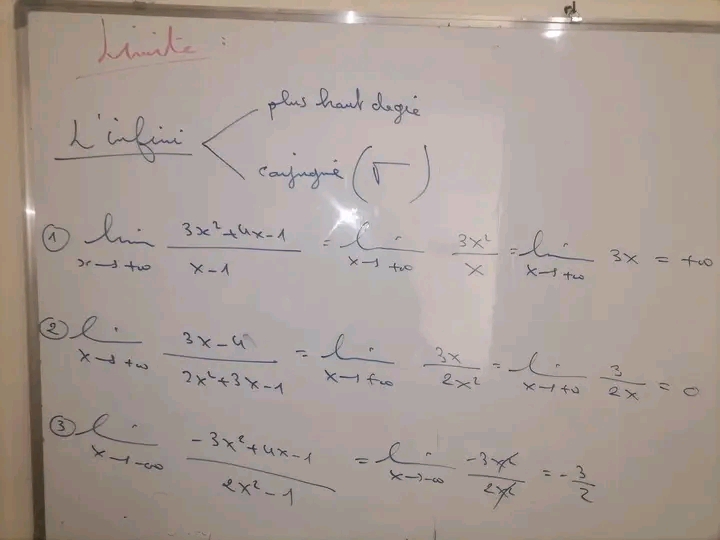 Limite :
plus haut degré
L'infini
conjugué (√)
① lim x→+∞ (3x²+4x-1)/(x-1) = lim x→+∞ 3x²/x = lim x→+∞ 3x = +∞
② lim x→+∞ (3x-4)/(2x²+3x-1) = lim x→+∞ 3x/2x² = lim x→+∞ 3/2x = 0
③ lim x→-∞ (-3x²+4x-1)/(2x²-1) = lim x→-∞ -3x²/2x² = -3/2